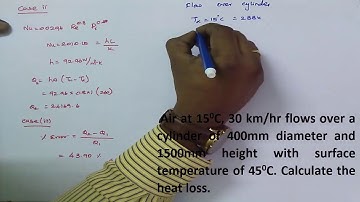 Case II
Nu = 0.0296 Re^0.8 Pr^0.33
Nu = 2010.10 = hL/K
h = 92.96 w/m²k
Q₂ = hA (Ts - T∞)
Q₂ = 24169.6
Case (iii)
% Error = Q₂ - Q₁ / Q₁
= 43.90 %
Flow over cylinder
T∞ = 15°C = 288k
Air at 15⁰C, 30 km/hr flows over a
cylinder of 400mm diameter and
1500mm height with surface
temperature of 45⁰C. Calculate the
heat loss.